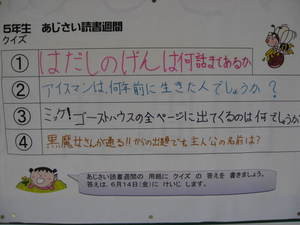 5年生　あじさい読書週間
クイズ
① はだしのげんは何話まであるか
② アイスマンは、何年前に生きた人でしょうか?
③ ミック!ゴーストハウスの全ページに出てくるのは何でしょうか
④ 黒魔女さんが通る!!からの出題です主人公の名前は?
あじさい読書週間の 用紙に クイズ の 答えを 書きましょう。
答えは、6月14日(金)に けいじ します。